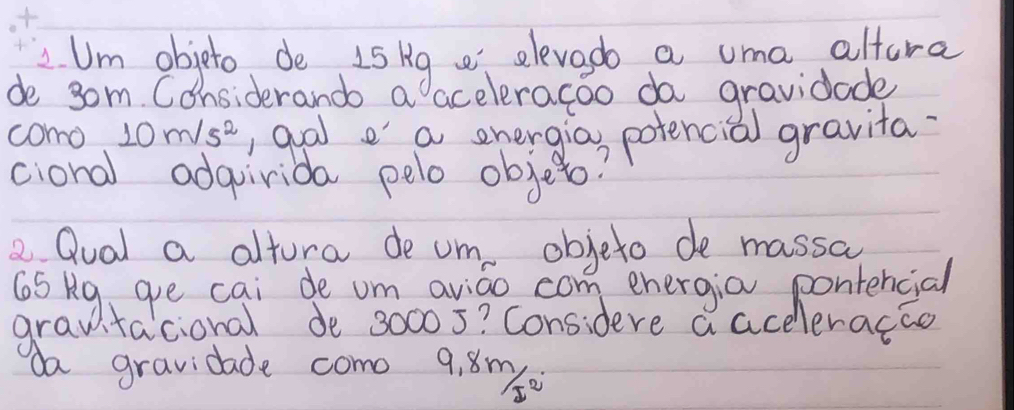 1. Um objeto de 15 kg é elevado a uma altura
de 30m. Considerando a aceleração da gravidade
como 10 m/s², qual é a energia potencial gravita-
cional adquirida pelo objeto?
2. Qual a altura de um objeto de massa
65 kg que cai de um avião com energia pontencial
gravitacional de 3000 J? Considere a aceleração
da gravidade como 9,8m/s².